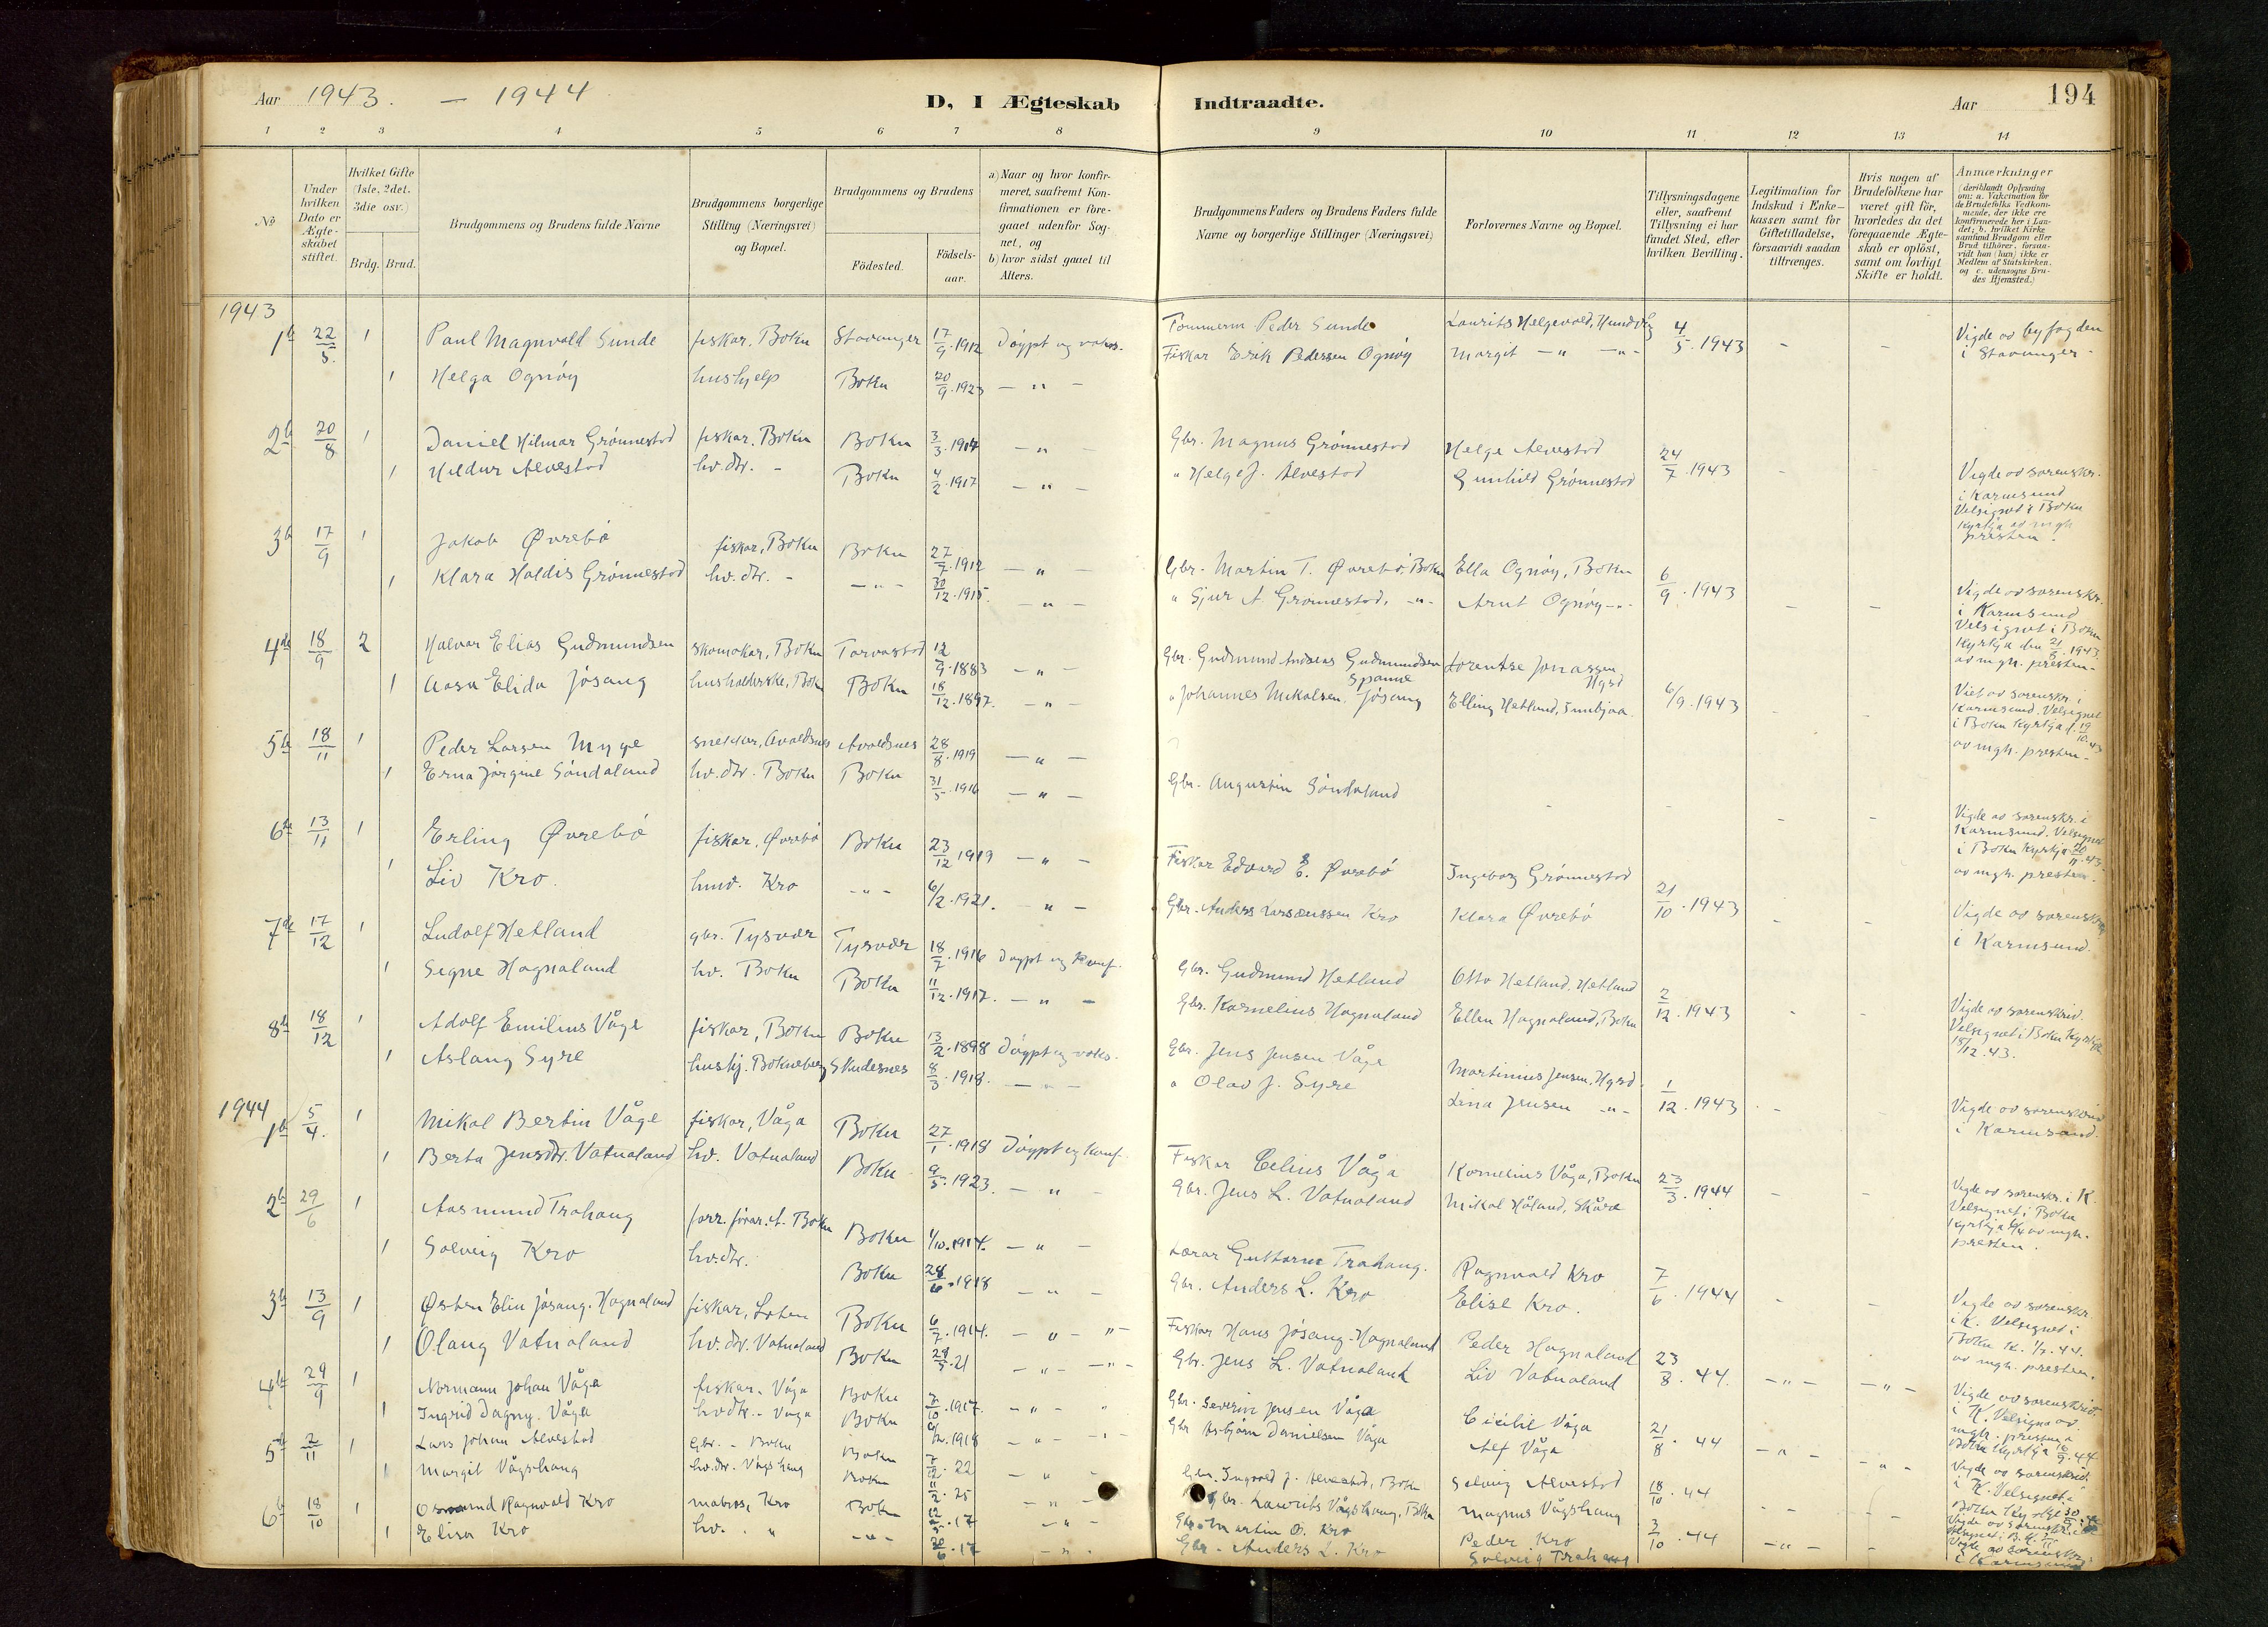 Aar 1943. — 1944
D, I Ægteskab
Indtraadte.
Aar
194
1 2 3 4 5 6 7 8 9 10 11 12 13 14
No
Under hvilken Dato er Ægteskabet stiftet.
Hvilket Gifte (1ste, 2det, 3die osv.)
Brdg. Brud.
Brudgommens og Brudens fulde Navne
Brudgommens borgerlige Stilling (Næringsvei) og Bopæl.
Brudgommens og Brudens
Fødested.
Fødselsaar.
a) Naar og hvor konfirmeret, saafremt Konfirmationen er foregaaet udenfor Sognet, og
b) hvor sidst gaaet til Alters.
Brudgommens Faders og Brudens Faders fulde Navne og borgerlige Stillinger (Næringsvei)
Forlovernes Navne og Bopæl.
Tillysningsdagene eller, saafremt Tillysning ei har fundet Sted, efter hvilken Bevilling.
Legitimation for Indskud i Enkekassen samt for Giftetilladelse, forsaavidt saadan tiltrænges.
Hvis nogen af Brudefolkene har været gift før, hvorledes da det foregaaende Ægteskab er opløst, samt om lovligt Skifte er holdt.
Anmærkninger
(deriblandt Oplysning om: a. Vakcination for de Brudefolks Vedkommende, der ikke ere konfirmerede her i Landet; b. hvilket Kirkesamfund Brudgom eller Brud tilhører, forsaavidt han (hun) ikke er Medlem af Statskirken, og c. udensogns Brudes Hjemsted.)
1943
1 22/5 1 Paul Magnvald Sunde fiskar, Bokn Stavanger 17/9.1912 Døypt og vaks. Tømmerm Peder Sunde Laurits Helgevold, Hundvåg 4/5.1943 - - Vigde av byfogden i Stavanger -
1 Helga Ognøy hushjelp Bokn 20/9.1923 — " — Fiskar Erik Pedersen Ognøy Margit — " — " -
2 20/8 1 Daniel Hilmar Grønnestad fiskar, Bokn Bokn 3/3.1914 — " — Gbr. Magnus Grønnestad Helge Alvestad 24/7.1943 - - Vigde av sorenskr. i Karmsund Velsignet i Bokn Kyrkja av mgh presten.
1 Hildur Alvestad hv. dtr. - Bokn 4/2.1917 — " — " Helge J. Alvestad Gunhild Grønnestad
3 17/9 1 Jakob Øvrebø fiskar, Bokn Bokn 27/7.1912 — " — Gbr. Martin T. Øvrebø, Bokn Ella Ognøy, Bokn 6/9.1943 - - Vigde av sorenskr. i Karmsund Velsignet i Bokn Kyrkja den 1943 av mgh. presten -
1 Klara Haldis Grønnestad hv. dtr. - — " - 30/12.1915. — " — " Sjur A. Grønnestad, - " - Arnt Ognøy - " -
4de 18/9 2 Halvar Elias Gudmundsen skomakar, Bokn Torvastad 12/9.1883 — " — Gbr. Gudmund Andreas Gudmundsen Spanne Lorentse Jonassen Hgsd 6/9.1943 - - Viet av sorenskr. i Karmsund. Velsignet i Bokn Kyrkja d. 19/10.43 av mgh. presten -
1 Aasa Elida Jøsang husholderske, Bokn Bokn 18/12.1897. — " — " Johannes Mikalsen Jøsang Elling Hetland,
5 18/11 1 Peder Larsen Myge snekkar, Avaldsnes Avaldsnes 28/8.1919 — " —
1 Erna Jørgine Søndaland hv. dtr. Bokn Bokn 31/5.1916 — " — Gbr. Augustin Søndaland - - - - Vigde av sorenskr. i Karmsund. Velsignet i Bokn Kyrkja 20/11.43 av mgh. presten.
6te 13/11 1 Erling Øvrebø fiskar, Øvrebø Bokn 23/12 1919 — " — Fiskar Edvard E. Øvrebø Ingeborg Grønnestad 21/10.1943 - - Vigde av sorenskr. i Karmsund.
1 Liv Kro. Kro - " - 6/2.1921. — " — Gbr. Anders Kro Klara Øvrebø
7de 17/12 1 Ludolf Hetland gbr. Tysvær Tysvær 18/7.1916 Døypt og konf. Gbr. Gudmund Hetland Otto Hetland, Hetland 2/12.1943 - - Vigde av sorenskriv. Velsignet i Bokn Kyrkja 18/12.43.
1 Signe Hognaland hv. Bokn Bokn 11/12.1917. — " — Gbr. Kornelius Hognaland Ellen Hognaland, Bokn
8 18/12 1 Adolf Emilius Våge fiskar, Bokn Bokn 13/2.1898 Døypt og vaks. Gbr. Jens Jensen Våge Martinius Jensen, Hgsd. 1/12.1943 - - Vigde av sorenskriv i Karmsund.
1 Aslaug Syre hushj. Bokneberg Skudesnes 8/3.1918. — " — " Olav J. Syre Lina Jensen - " -
1944
1 5/4. 1 Mikal Bertin Våge fiskar, Våga Bokn 27/1.1918 Døypt og konf. Fiskar Celius Våga Kornelius Våga, Bokn 23/3.1944 - - Vigde av sorenskr. i K. Velsignet i Bokn Kyrkja av mgh. presten.
1 Berta Jensdtr. Vatnaland hv. Vatnaland Bokn 9/5.1923. — " — Gbr. Jens L. Vatnaland Mikal Håland, Skåre
2 29/6 1 Aasmund Trohaug forr. førar. Bokn Bokn 1/10.1914. — " — Lærar Guttorm Trohaug. Ragnvald Kro 7/6.1944 - - Vigde av sorenskr i K. Velsignet i Bokn K. 1/7.44. av mgh. presten.
1 Solveig Kro hv.dtr. Bokn 28/6.1918 — " — Gbr. Anders L. Kro Elise Kro.
3 13/9 1 Østen Elin Jøsang-Hognaland fiskar, Loten Bokn 6/7.1914. — " — " — Fiskar Hans Jøsang-Hognaland Peder Hognaland 23/8.44. — " — — " — Vigde av sorenskriv. i K. Velsigna av mgh. presten i Bokn Kyrkja 16/9.44
1 Olaug Vatnaland hv. dtr. Vatnaland Bokn .21 — " — — " — Gbr. Jens L. Vatnaland Liv Vatnaland
4 29/9 1 Normann Johan Våga fiskar. Våga Bokn .1917. — " — " Gbr. Severin Jensen Våga Cicilie Våga 21/8.44 — " — — " — Vigde av sorenskriv. i K. Velsignet i Bokn Kyrkje 30/9.44
1 Ingrid Dagny. Våga hv dtr. - Våga Bokn .1918 — " — Gbr Asbjørn Danielsen Våga Alf Våga
5 2/11 1 Lars Johan Alvestad Gbr. - Bokn Bokn .22 — " — Gbr. Ingvald J. Alvestad, Bokn Solveig Alvestad 18/10.44 - - - Vigde av sorenskriv.
1 Margit Vågshaug hv.dtr. Vågshaug Bokn 11/2.25 — " — Gbr. Laurits Vågshaug, Bokn Magnus Vågshaug
6 18/10 1 Ragnvald Kro matros, Kro Bokn .17 — " — Gbr. Martin O. Kro Peder Kro 3/10.44 — " — - Vigde av sorenskriv i Karmsund
1 Elisa Kro hv. " - " - 30/6.17 — " — Gbr. Anders L. Kro Solveig Trohaug